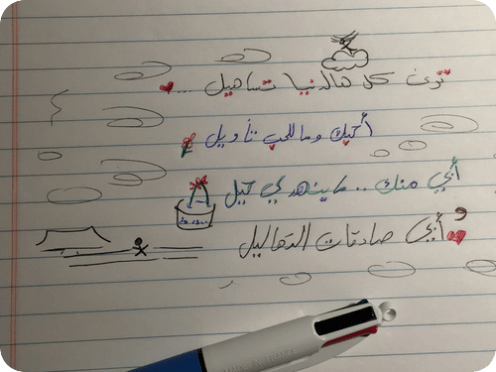 توك كل هالدنيا تساهيل ...
أحبك وما للحب تأويل
أبي منك .. ما ينهدي كيل
و أبي صادقات التهاليل